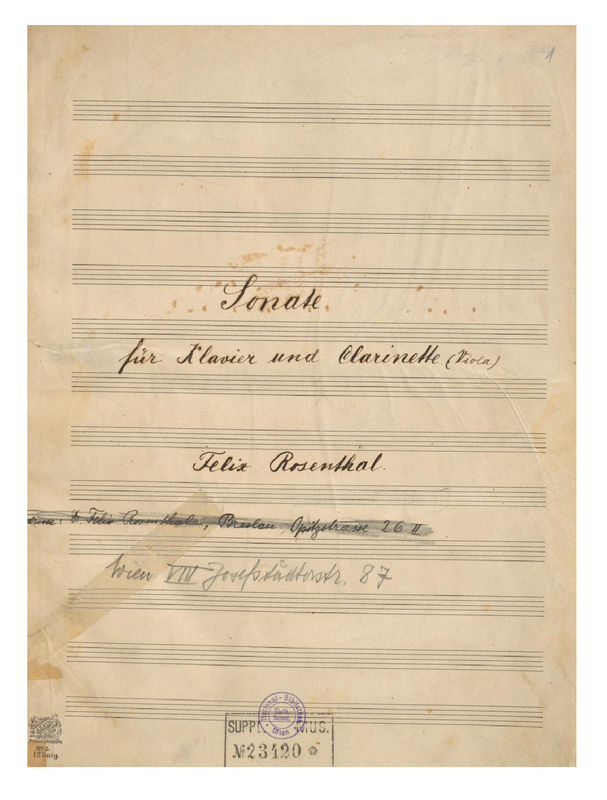 1
Sonate
für Klavier und Clarinette (Viola)
Felix Rosenthal.
Dr. Felix Rosenthal, Breslau, Opitzstrasse 26 II
Wien VIII Josefstädterstr. 87
National-Bibliothek
Wien
SUPPL. MUS.
№ 23420
No 2.
12 linig.